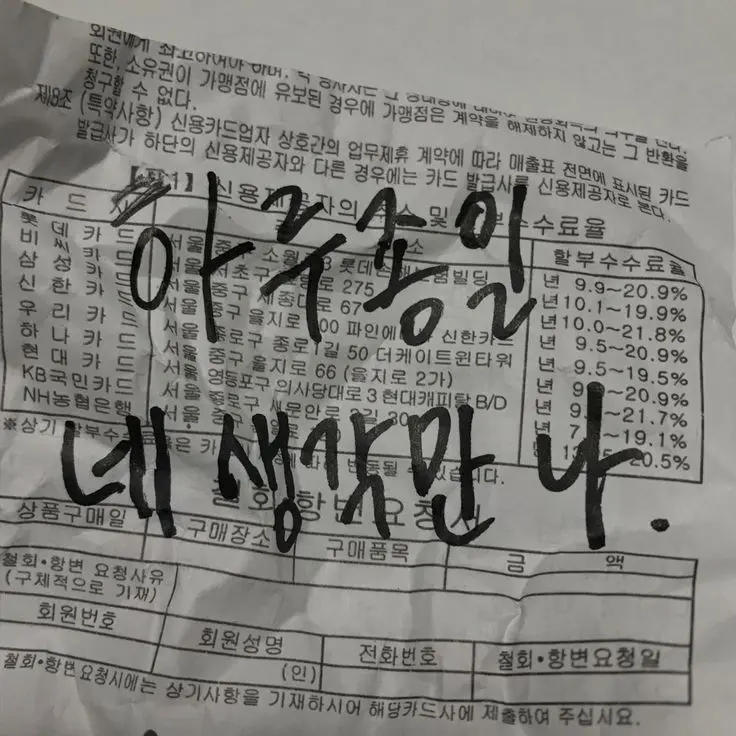 회원에게 최고하여야 하며,
또한, 소유권이 가맹점에 유보된 경우에 가맹점은 계약을 해제하지 않고는 그 반환을
청구할 수 없다.
제8조 (특약사항) 신용카드업자 상호간의 업무제휴 계약에 따라 매출표 전면에 표시된 카드
발급사가 하단의 신용제공자와 다른 경우에는 카드 발급사를 신용제공자로 본다.
신용제공자의 주소 및 할부수수료율
하루종일
카드사 주소 할부수수료율
롯데카드 서울 중구 소월로3 롯데손해보험빌딩 년 9.9~20.9%
비씨카드 서울 서초구 275 년10.1~19.9%
삼성카드 서울 중구 세종대로 67 년10.0~21.8%
신한카드 서울 중구 을지로 100 파인에 신한카드 년 9.5~20.9%
우리카드 서울 종로구 종로1길 50 더케이트윈타워 년 9.5~19.5%
하나카드 서울 중구 을지로 66 (을지로 2가) 년 20.9%
현대카드 서울 영등포구 의사당대로3 현대캐피탈 B/D 년 ~21.7%
KB국민카드 서울 종로구 새문안로3길 30 년 ~19.1%
NH농협은행 서울 중구 ~20.5%
※상기 할부수수료율은 카드 따라 변동될 수 있습니다.
네 생각만 나.
철회·항변요청서
상품구매일 구매장소 구매품목 금 액
철회·항변 요청사유
(구체적으로 기재)
회원번호 회원성명 전화번호 철회·항변요청일
(인)
철회·항변요청시에는 상기사항을 기재하시어 해당카드사에 제출하여 주십시요.